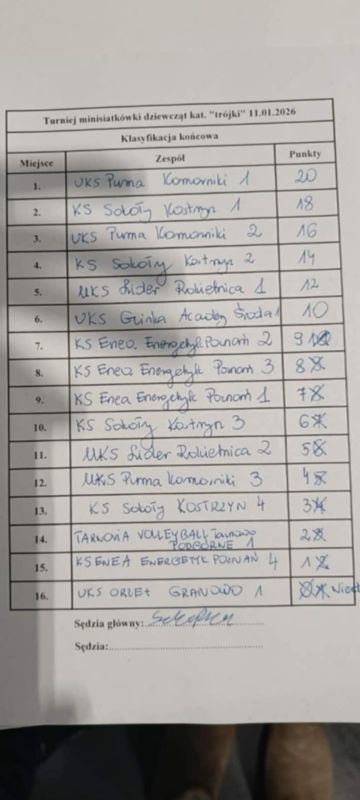 Turniej minisiatkówki dziewcząt kat. "trójki" 11.01.2026
Klasyfikacja końcowa
Miejsce Zespół Punkty
1. UKS Puma Komorniki 1 20
2. KS Sokoły Kostrzyn 1 18
3. UKS Puma Komorniki 2 16
4. KS Sokoły Kostrzyn 2 14
5. UKS Lider Rokietnica 1 12
6. UKS Glinka Academy Środa 1 10
7. KS Enea Energetyk Poznań 2 9
8. KS Enea Energetyk Poznań 3 8
9. KS Enea Energetyk Poznań 1 7
10. KS Sokoły Kostrzyn 3 6
11. UKS Lider Rokietnica 2 5
12. UKS Puma Komorniki 3 4
13. KS Sokoły KOSTRZYN 4 3
14. TARNOVIA VOLLEYBALL Tarnowo PODGÓRNE 1 2
15. KS ENEA ENERGETYK POZNAŃ 4 1
16. UKS ORLĘTA GRANOWO 1
Sędzia główny:
Sędzia: